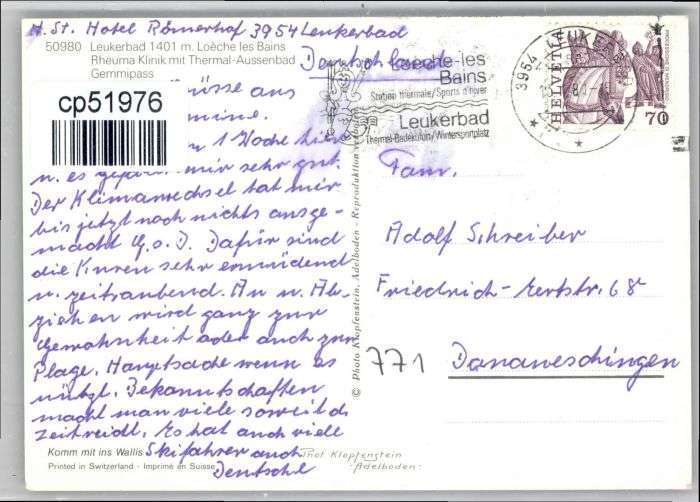 H. St. Hotel Römerhof 3954 Leukerbad
50980 Leukerbad 1401 m. Loèche les Bains
Rheuma Klinik mit Thermal-Aussenbad
Gemmipass
Deutschland
cp51976
üsse aus
1 Woche hier
u. es mir sehr gut.
Der Klimawechsel hat mir
bis jetzt noch nichts ausge-
macht G.s.D. Dafür sind
die Kuren sehr ermüdend
u. zeitraubend. An u. Ab-
ziehen wird ganz zur
Gewohnheit oder auch zur
Plage. Hauptsache wenn es
nützt. Bekanntschaften
macht man viele soweit d.
Zeit reicht. Es hat auch viele
Skifahrer auch
Deutsche
Komm mit ins Wallis
Printed in Switzerland - Imprimé en Suisse
Thot Klopfenstein
Adelboden
© Photo Klopfenstein, Adelboden - Reproduktion verboten
Loèche-les
Bains
Station thermale/Sports d'hiver
Leukerbad
Thermal-Badekurort/Wintersportplatz
3954 LEUKERBAD
HELVETIA
70
Fam.
Adolf Schreiber
Friedrich-Ebertstr. 68
771 Donaueschingen